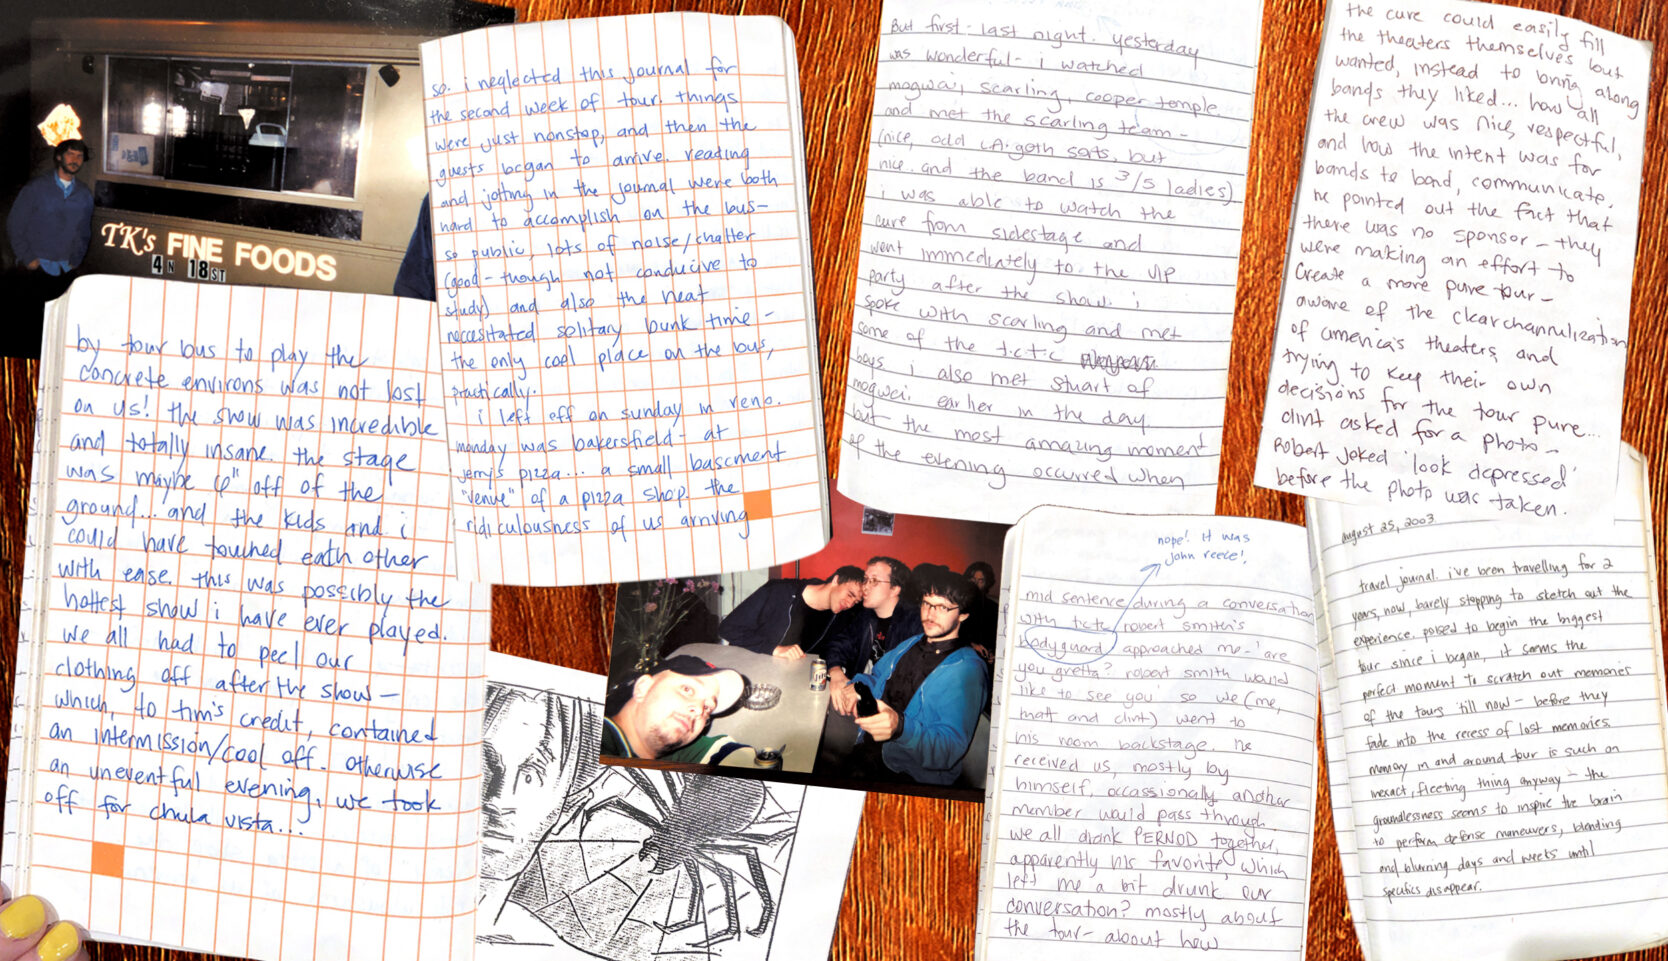 TK's FINE FOODS
4 N 18ST
so. i neglected this journal for
the second week of tour. things
were just nonstop, and then the
guests began to arrive. reading
and jotting in the journal were both
hard to accomplish on the bus–
so public, lots of noise/chatter
(good – though not conducive to
study) and also the heat
necesitated solitary bunk time –
the only cool place on the bus,
practically.
i left off on sunday in reno.
monday was bakersfield – at
jerry's pizza... a small basement
"venue" of a pizza shop. the
ridiculousness of us arriving
by tour bus to play the
concrete environs was not lost
on us! the show was incredible
and totally insane. the stage
was maybe 6" off of the
ground... and the kids and i
could have touched eath other
with ease. this was possibly the
hottest show i have ever played.
we all had to peel our
clothing off after the show –
which, to tim's credit, contained
an intermission/cool off. otherwise
an uneventful evening, we took
off for chula vista...
But first – last night. yesterday
was wonderful – i watched
mogwai, scarling, cooper temple.
and met the scarling team –
(nice, odd LA. goth sorts, but
nice. and the band is 3/5 ladies)
i was able to watch the
cure from sidestage and
went immediately to the VIP
party after the show. i
spoke with scarling and met
some of the t.c.t.c
boys. i also met stuart of
mogwai. earlier in the day.
but the most amazing moment
of the evening occurred when
nope! it was
john reece!
mid sentence during a conversation
with tctc robert smith's
bodyguard approached me – 'are
you gretta? robert smith would
like to see you' so we (me,
matt and clint) went to
his room backstage. he
received us, mostly by
himself, occassionally another
member would pass through.
we all drank PERNOD together,
apparently his favorite, which
left me a bit drunk. our
conversation? mostly about
the tour – about how
the cure could easily fill
the theaters themselves but
wanted, instead to bring along
bands they liked... how all
the crew was nice, respectful,
and how the intent was for
bands to bond, communicate.
he pointed out the fact that
there was no sponsor – they
were making an effort to
create a more pure tour –
aware of the clearchannelization
of america's theaters, and
trying to keep their own
decisions for the tour pure...
clint asked for a photo –
Robert joked 'look depressed'
before the photo was taken.
august 25, 2003
travel journal. i've been travelling for 2
years, now, barely stopping to sketch out the
experience. poised to begin the biggest
tour since i began, it seems the
perfect moment to scratch out memories
of the tours 'till now – before they
fade into the recess of lost memories.
memory in and around tour is such an
inexact, fleeting thing anyway – the
groundlessness seems to inspire the brain
to perform defense maneuvers, blending
and blurring days and weeks until
specifics disappear.